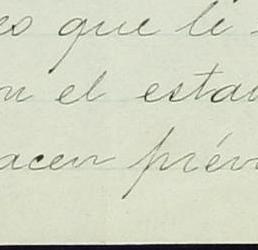 es que le
n el esta
acen prév